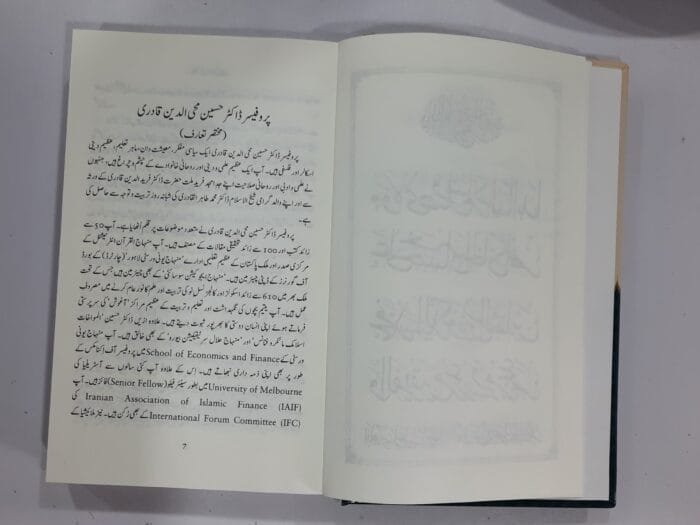 پروفیسر ڈاکٹر حسین محی الدین قادری
(مختصر تعارف)
پروفیسر ڈاکٹر حسین محی الدین قادری ایک سیاسی مفکر، معیشت دان، ماہر تعلیم، عظیم دینی
اسکالر اور فلسفی ہیں۔ آپ ایک عظیم علمی و دینی اور روحانی خانوادے کے چشم و چراغ ہیں، جنہوں
نے علمی و ادبی اور روحانی صلاحیت اپنے جد امجد فرید ملت حضرت ڈاکٹر فرید الدین قادری کے ورثہ
سے اور اپنے والد گرامی شیخ الاسلام ڈاکٹر محمد طاہر القادری کی شبانہ روز تربیت و توجہ سے حاصل کی
ہے۔
پروفیسر ڈاکٹر حسین محی الدین قادری نے متعدد موضوعات پر قلم اُٹھایا ہے۔ آپ 50 سے
زائد کتب اور 100 سے زائد تحقیقی مقالات کے مصنف ہیں۔ آپ منہاج القرآن انٹرنیشنل کے
مرکزی صدر اور ملک پاکستان کے عظیم تعلیمی ادارے 'منہاج یونی ورسٹی لاہور' (چارٹرڈ) کے بورڈ
آف گورنرز کے ڈپٹی چیئرمین ہیں۔ 'منہاج ایجوکیشن سوسائٹی' کے بھی چیئرمین ہیں، جس کے تحت
ملک بھر میں 610 سے زائد اسکولز اور کالجز نسل نو کی تربیت اور علم کا نور عام کرنے میں مصروف
عمل ہیں۔ آپ یتیم بچوں کی نگہداشت اور تعلیم و تربیت کے عظیم مراکز 'آغوش' کی سرپرستی
فرماتے ہوئے اپنی انسان دوستی کا بھرپور ثبوت دیتے ہیں۔ علاوہ ازیں ڈاکٹر حسین 'المواخات
اسلامک مائکروفنانس' اور 'منہاج حلال سرٹیفیکیشن بیورو' کے بھی خالق ہیں۔ آپ منہاج یونی
ورسٹی کے School of Economics and Finance میں پروفیسر آف اکنامکس کے
طور پر بھی اپنی ذمہ داری نبھاتے ہیں۔ اس کے علاوہ آپ کئی سالوں سے آسٹریلیا کی
University of Melbourne میں بطور سینئر فیلو (Senior Fellow) فائز ہیں۔ آپ
Iranian Association of Islamic Finance (IAIF) کی
International Forum Committee (IFC) کے بھی رُکن ہیں۔ نیز ملائیشیا کے
7